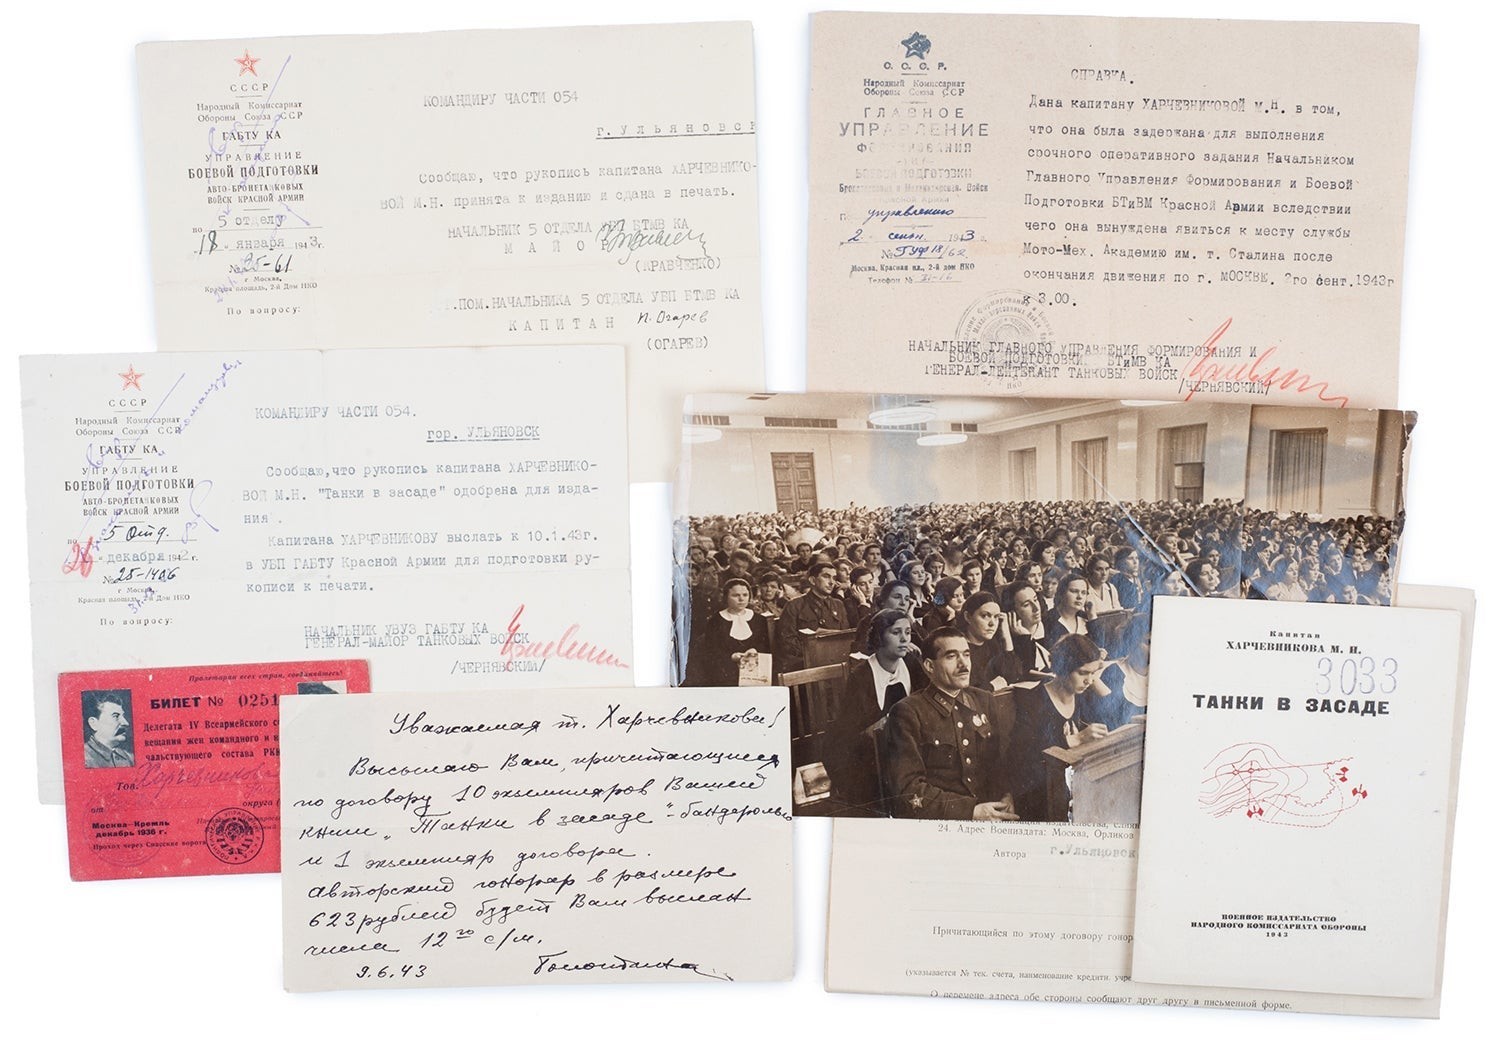 СССР
Народный Комиссариат
Обороны Союза ССР
ГАБТУ КА
УПРАВЛЕНИЕ
БОЕВОЙ ПОДГОТОВКИ
АВТО-БРОНЕТАНКОВЫХ
ВОЙСК КРАСНОЙ АРМИИ
по 5 отделу
"18" января 1943 г.
№ 25-61
г Москва,
Красная площадь, 2-й Дом НКО
По вопросу:
КОМАНДИРУ ЧАСТИ 054
г.УЛЬЯНОВСК
Сообщаю, что рукопись капитана ХАРЧЕВНИКО-
ВОЙ М.Н. принята к изданию и сдана в печать.
НАЧАЛЬНИК 5 ОТДЕЛА УБП БТМВ КА
МАЙОР
(КРАВЧЕНКО)
Т.ПОМ.НАЧАЛЬНИКА 5 ОТДЕЛА УБП БТМВ КА
КАПИТАН П. Огарев
(ОГАРЕВ)
С.С.С.Р.
Народный Комиссариат
Обороны Союза ССР
ГЛАВНОЕ
УПРАВЛЕНИЕ
ФОРМИРОВАНИЯ
БОЕВОЙ ПОДГОТОВКИ
Бронетанковых и Механизирован. Войск
Красной Армии
По управлению
"2" сент. 1943 г.
№ ГУФ 18/62
Москва, Красная пл., 2-й дом НКО
Телефон №
СПРАВКА.
Дана капитану ХАРЧЕВНИКОВОЙ М.Н. в том,
что она была задержана для выполнения
срочного оперативного задания Начальником
Главного Управления Формирования и Боевой
Подготовки БТиВМ Красной Армии вследствии
чего она вынуждена явиться к месту службы
Мото-Мех. Академию им. т. Сталина после
окончания движения по г. МОСКВЕ. 2го сент.1943г
к 3.00.
НАЧАЛЬНИК ГЛАВНОГО УПРАВЛЕНИЯ ФОРМИРОВАНИЯ И
БОЕВОЙ ПОДГОТОВКИ БТиМВ КА
ГЕНЕРАЛ-ЛЕЙТЕНАНТ ТАНКОВЫХ ВОЙСК
/ЧЕРНЯВСКИЙ/
СССР
Народный Комиссариат
Обороны Союза ССР
ГАБТУ КА
УПРАВЛЕНИЕ
БОЕВОЙ ПОДГОТОВКИ
АВТО-БРОНЕТАНКОВЫХ
ВОЙСК КРАСНОЙ АРМИИ
по 5 Отд.
"26" декабря 1942 г.
№ 25-1406
г Москва,
Красная площадь, 2-й Дом НКО
По вопросу:
КОМАНДИРУ ЧАСТИ 054.
гор. УЛЬЯНОВСК
Сообщаю,что рукопись капитана ХАРЧЕВНИКО-
ВОЙ М.Н. "Танки в засаде" одобрена для изда-
ния.
Капитана ХАРЧЕВНИКОВУ выслать к 10.1.43г.
в УБП ГАБТУ Красной Армии для подготовки ру-
кописи к печати.
НАЧАЛЬНИК УВУЗ ГАБТУ КА
ГЕНЕРАЛ-МАЙОР ТАНКОВЫХ ВОЙСК
/ЧЕРНЯВСКИЙ/
Пролетарии всех стран, соединяйтесь!
БИЛЕТ № 0251
Делегата IV Всеармейского со
вещания жен командного и н
чальствующего состава РКК
Тов. Харчевникова
от
округа (
Москва-Кремль
декабрь 1936 г.
Проход через Спасские ворота
Уважаемая т. Харчевникова!
Высылаю Вам, причитающиеся
по договору 10 экземпляров Вашей
книги „Танки в засаде" - бандеролью
и 1 экземпляр договора.
Авторский гонорар в размере
623 рублей будет Вам выслан
числа 12го с/м.
9.6.43
24. Адрес Воениздата: Москва, Орликов
Автора г.Ульяновск
Причитающийся по этому договору гонор
(указывается № тек. счета, наименование кредитн. учре
О перемене адреса обе стороны сообщают друг другу в письменной форме.
Капитан
ХАРЧЕВНИКОВА М. Н.
3033
ТАНКИ В ЗАСАДЕ
ВОЕННОЕ ИЗДАТЕЛЬСТВО
НАРОДНОГО КОМИССАРИАТА ОБОРОНЫ
1943